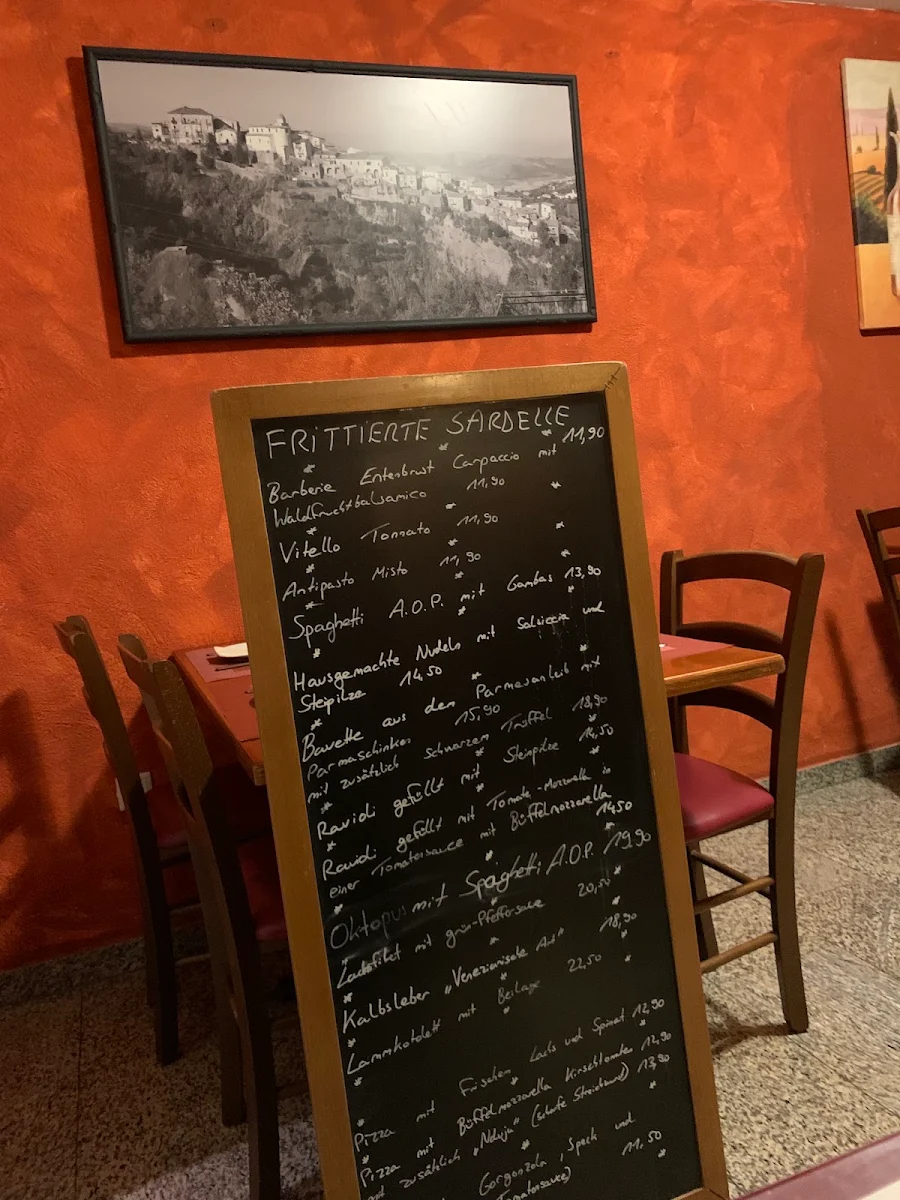 FRITTIERTE SARDELLE
11,90
Barberie Entenbrust Carpaccio mit
Waldfruchtbalsamico 11,90
Vitello Tonnato 11,90
Antipasto Misto 11,90
Spaghetti A.O.P. mit Gambas 13,90
Hausgemachte Nudeln mit Salsiccia und
Steipilze 14,50
Bavette aus dem Parmesanleib mit
Parmaschinken 15,90
mit zusätzlich schwarzem Trüffel 18,90
Ravioli gefüllt mit Steinpilze 14,50
Ravioli gefüllt mit Tomate-Mozzarella in
einer Tomatensauce mit Büffelmozzarella
14,50
Oktopus mit Spaghetti A.O.P. 19,90
Lachsfilet mit grün-Pfeffersauce 20,50
Kalbsleber „Venezianische Art" 18,90
Lammkotelett mit Beilage 22,50
Pizza mit Frischen Lachs und Spinat 12,90
Pizza mit Büffelmozzarella Kirschtomaten 12,90
mit zusätzlich „Nduja" (scharfe Streichwurst) 13,90
Gorgonzola, Speck und
Tomatensauce) 11,50